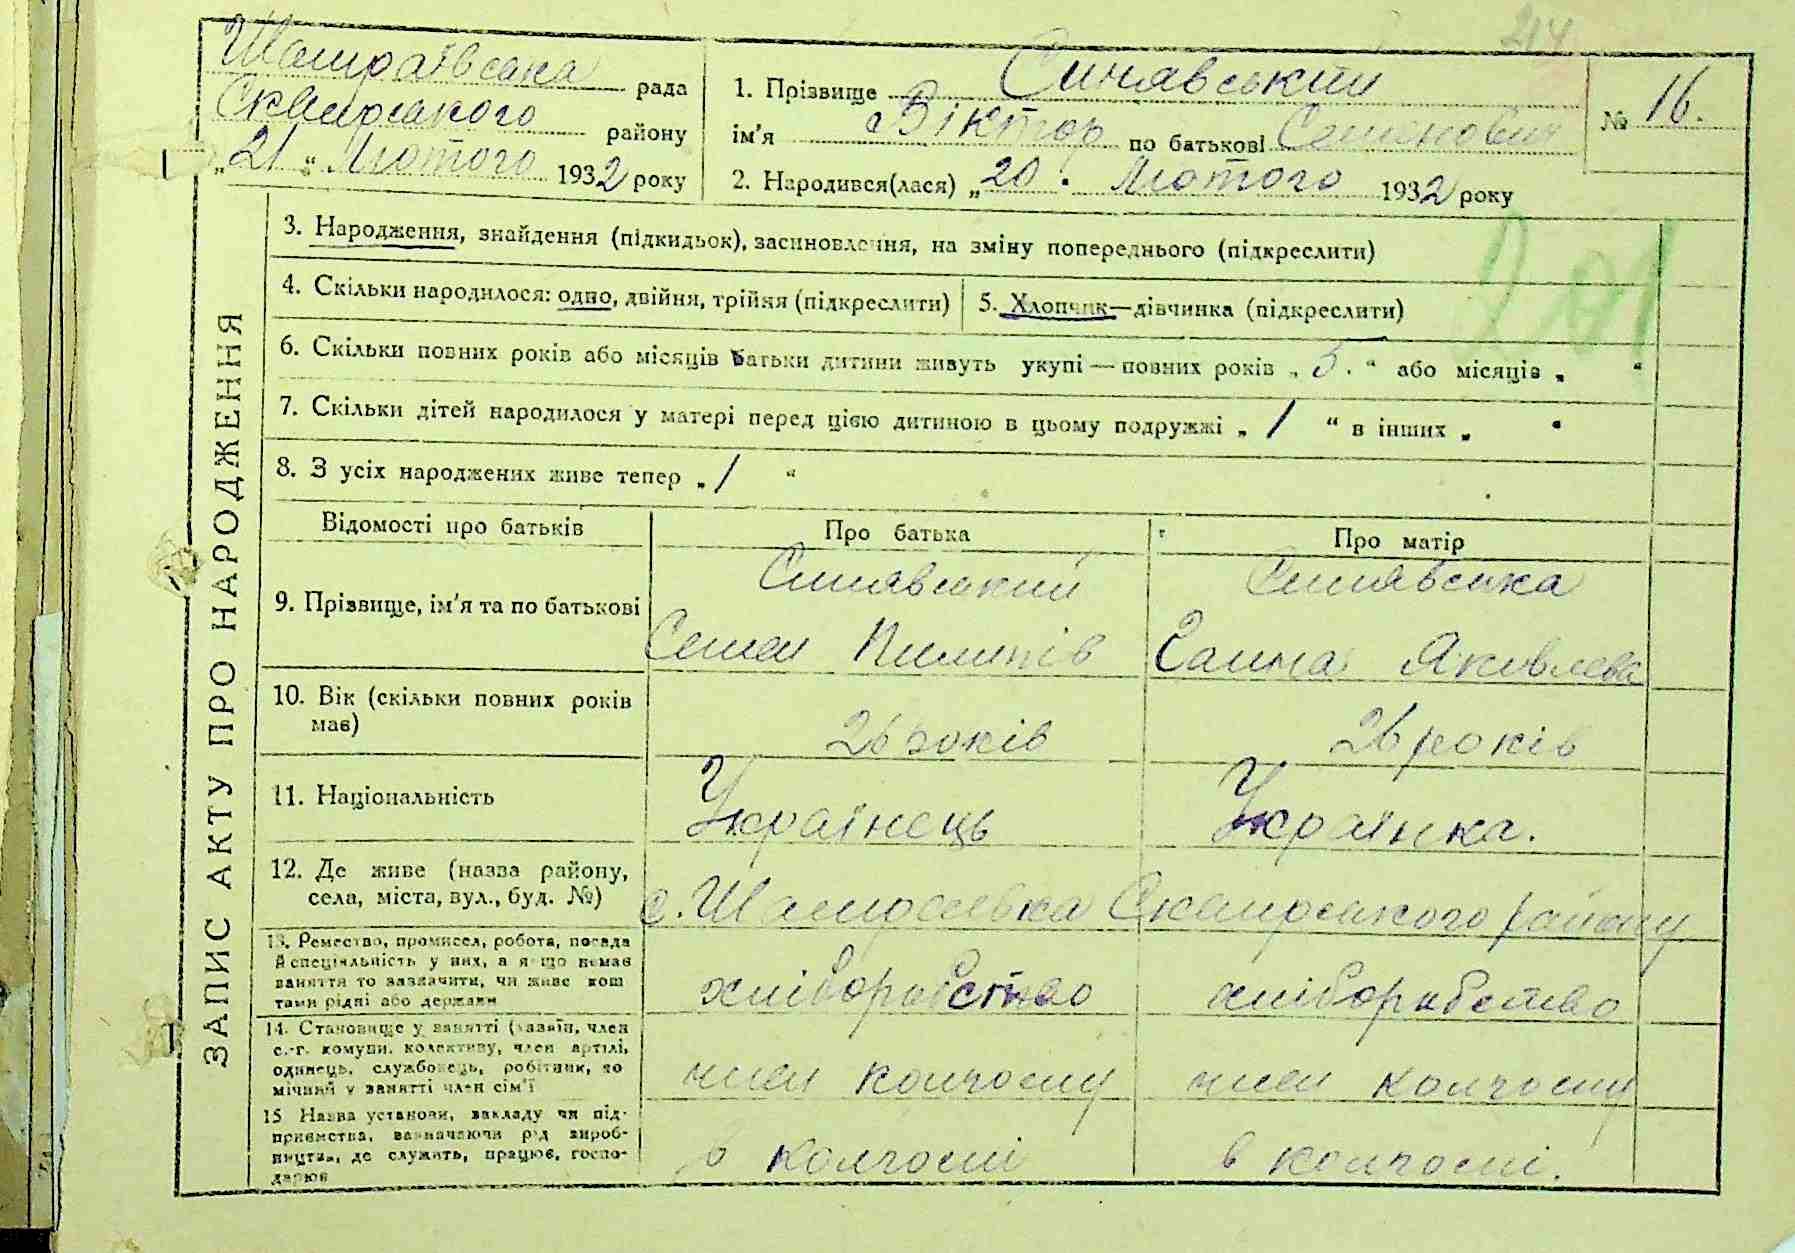 214
Шамраївська рада
Сквирського району
„21“ Лютого 1932 року
1. Прізвище Синявський
ім'я Віктор по батькові Семенович
№ 16.
2. Народився(лася) „20. Лютого 1932 року
ЗАПИС АКТУ ПРО НАРОДЖЕННЯ
3. Народження, знайдення (підкидьок), засиновлення, на зміну попереднього (підкреслити)
4. Скільки народилося: одно, двійня, трійня (підкреслити)
5. Хлопчик—дівчинка (підкреслити)
6. Скільки повних років або місяців батьки дитини живуть укупі — повних років „5.“ або місяців „ “
7. Скільки дітей народилося у матері перед цією дитиною в цьому подружжі „1 “ в інших „ “
8. З усіх народжених живе тепер „1 “
Відомості про батьків
Про батька
Про матір
9. Прізвище, ім'я та по батькові
Синявський
Семен Пилипів
Синявська
Ганна Яковлева
10. Вік (скільки повних років
має)
26 років
26 років
11. Національність
Українець
Українка.
12. Де живе (назва району,
села, міста, вул., буд. №)
с. Шамраєвка Сквирського району
13. Ремество, промисел, робота, посада
й спеціяльність у них, а якщо немає
заняття то зазначити, чи живе кош
тами рідні або держави
хліборобство
хліборобство
14. Становище у занятті (хазяїн, член
с.-г. комуни, колективу, член артілі,
одинець, службовець, робітник, по
мічний у занятті член сім'ї
член колгоспу
член колгоспу
15 Назва установи, закладу чи під-
приємства, зазначаючи рід вироб-
ництва, де служить, працює, госпо-
дарює
в колгоспі
в колгоспі.